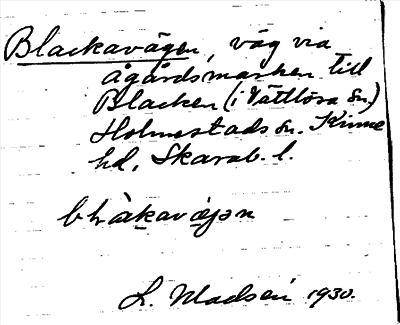 Blackavägen, väg via
ågårdsmarken till
Blacken (i Vättlösa sn.)
Holmestads sn. Kinne
hd, Skarab. l.
L. Madsén 1930.